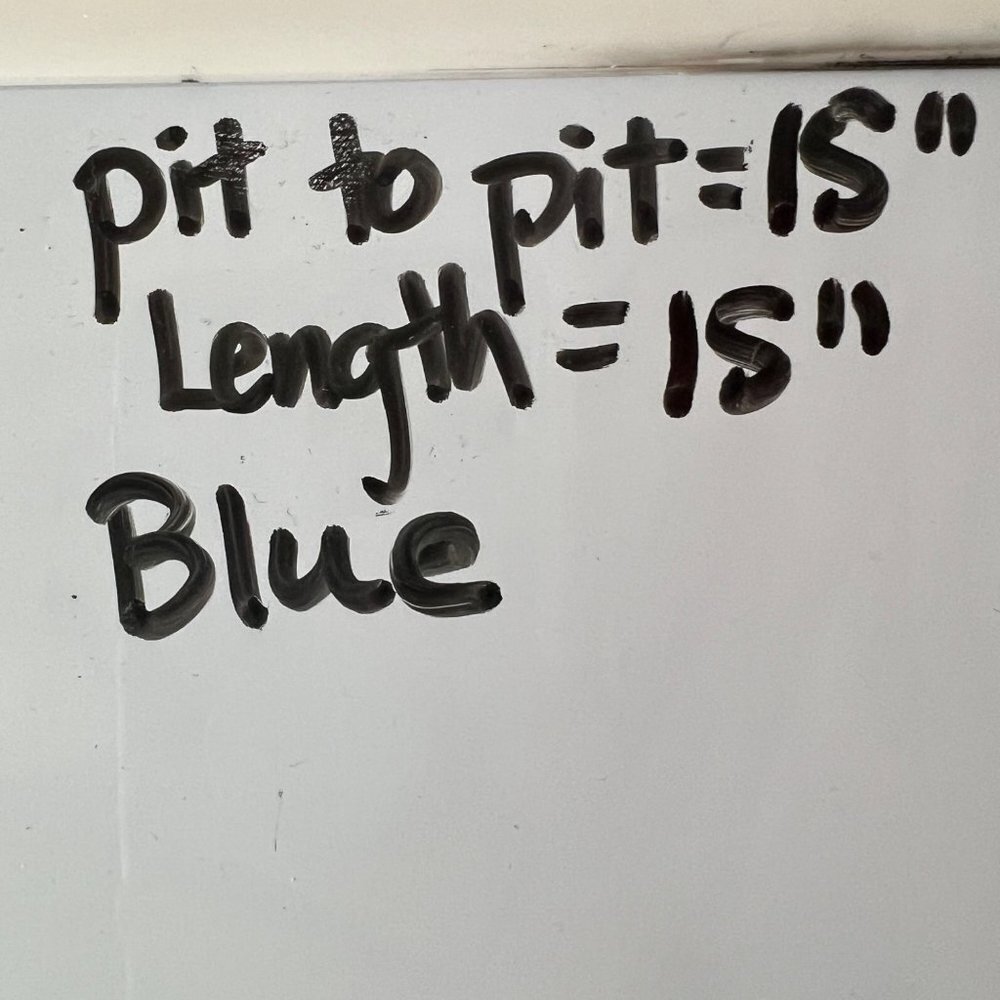 pit to pit=15"
Length=15"
Blue